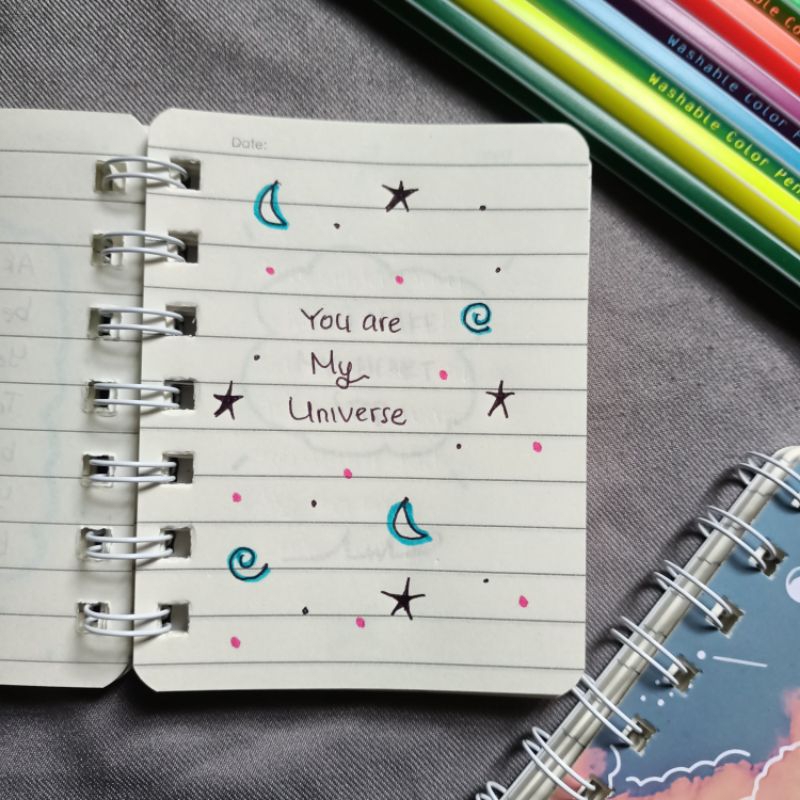 Date:
You are
My
Universe
Washable Color Pen
Washable Color P
Washable Co